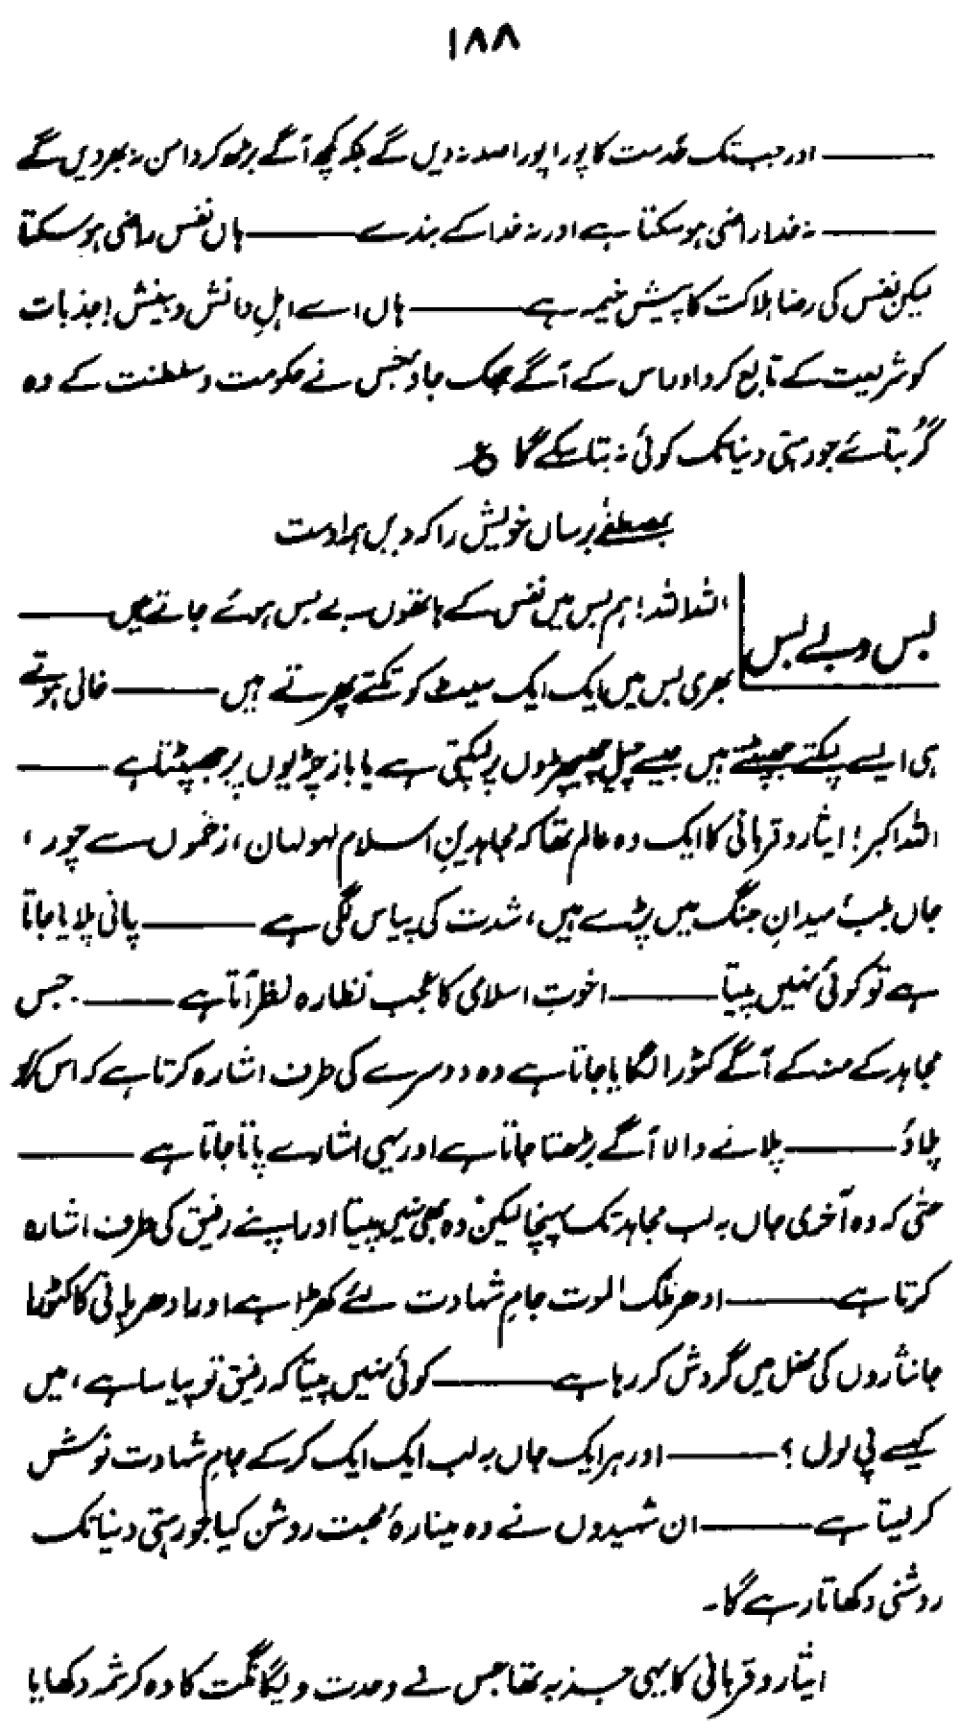 ۱۸۸
——— اور جب تک خدمت کا پورا پورا صلہ نہ دیں گے بلکہ کچھ آگے بڑھ کر دامن نہ بھر دیں گے
——— نہ خدا راضی ہو سکتا ہے اور نہ خدا کے بندے ——— ہاں نفس راضی ہو سکتا
لیکن نفس کی رضا ہلاکت کا پیش خیمہ ہے ——— ہاں اے اہلِ دانش و بینش! جذبات
کو شریعت کے تابع کر دو اور اس کے آگے جھک جاؤ جس نے حکومت و سلطنت کے وہ
گُر بتائے جو رہتی دنیا تک کوئی نہ بتا سکے گا ع
بمصطفےٰ برساں خویش را کہ دیں ہمہ اوست
بس و بے بس
اللہ اللہ! ہم بس میں نفس کے ہاتھوں بے بس ہوئے جاتے ہیں ———
بھری بس میں ایک ایک سیٹ کو تکتے پھرتے ہیں ——— خالی ہوتے
ہی ایسے لپکتے جھپٹتے ہیں جیسے چیل چھیچھڑوں پر لپکتی ہے یا باز چڑیوں پر جھپٹتا ہے ———
اللہ اکبر! ایثار و قربانی کا ایک وہ عالم تھا کہ مجاہدینِ اسلام لہولہان، زخموں سے چور،
جاں بلب میدانِ جنگ میں پڑے ہیں، شدت کی پیاس لگی ہے ——— پانی پلایا جاتا
ہے تو کوئی نہیں پیتا ——— اخوتِ اسلامی کا عجب نظارہ نظر آتا ہے ——— جس
مجاہد کے منہ کے آگے کٹورا لگایا جاتا ہے وہ دوسرے کی طرف اشارہ کرتا ہے کہ اس کو
پلاؤ ——— پلانے والا آگے بڑھتا جاتا ہے اور یہی اشارے پاتا جاتا ہے ———
حتٰی کہ وہ آخری جاں بہ لب مجاہد تک پہنچا لیکن وہ بھی نہیں پیتا اور اپنے رفیق کی طرف اشارہ
کرتا ہے ——— ادھر ملک الموت جامِ شہادت لئے کھڑا ہے اور ادھر پانی کا کٹورا
جانثاروں کی محفل میں گردش کر رہا ہے ——— کوئی نہیں پیتا کہ رفیق تو پیاسا ہے، میں
کیسے پی لوں؟ ——— اور ہر ایک جاں بہ لب ایک ایک کر کے جامِ شہادت نوش
کر لیتا ہے ——— ان شہیدوں نے وہ مینارۂ محبت روشن کیا جو رہتی دنیا تک
روشنی دکھاتا رہے گا۔
ایثار و قربانی کا یہی جذبہ تھا جس نے وحدت و یگانگت کا وہ کرشمہ دکھایا